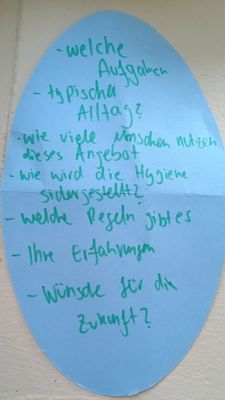 - welche
Aufgaben
- typischer
Alltag?
- wie viele Menschen nutzen
dieses Angebot
- wie wird die Hygiene
sichergestellt?
- welche Regeln gibt es
- Ihre Erfahrungen
- Wünsche für die
Zukunft?